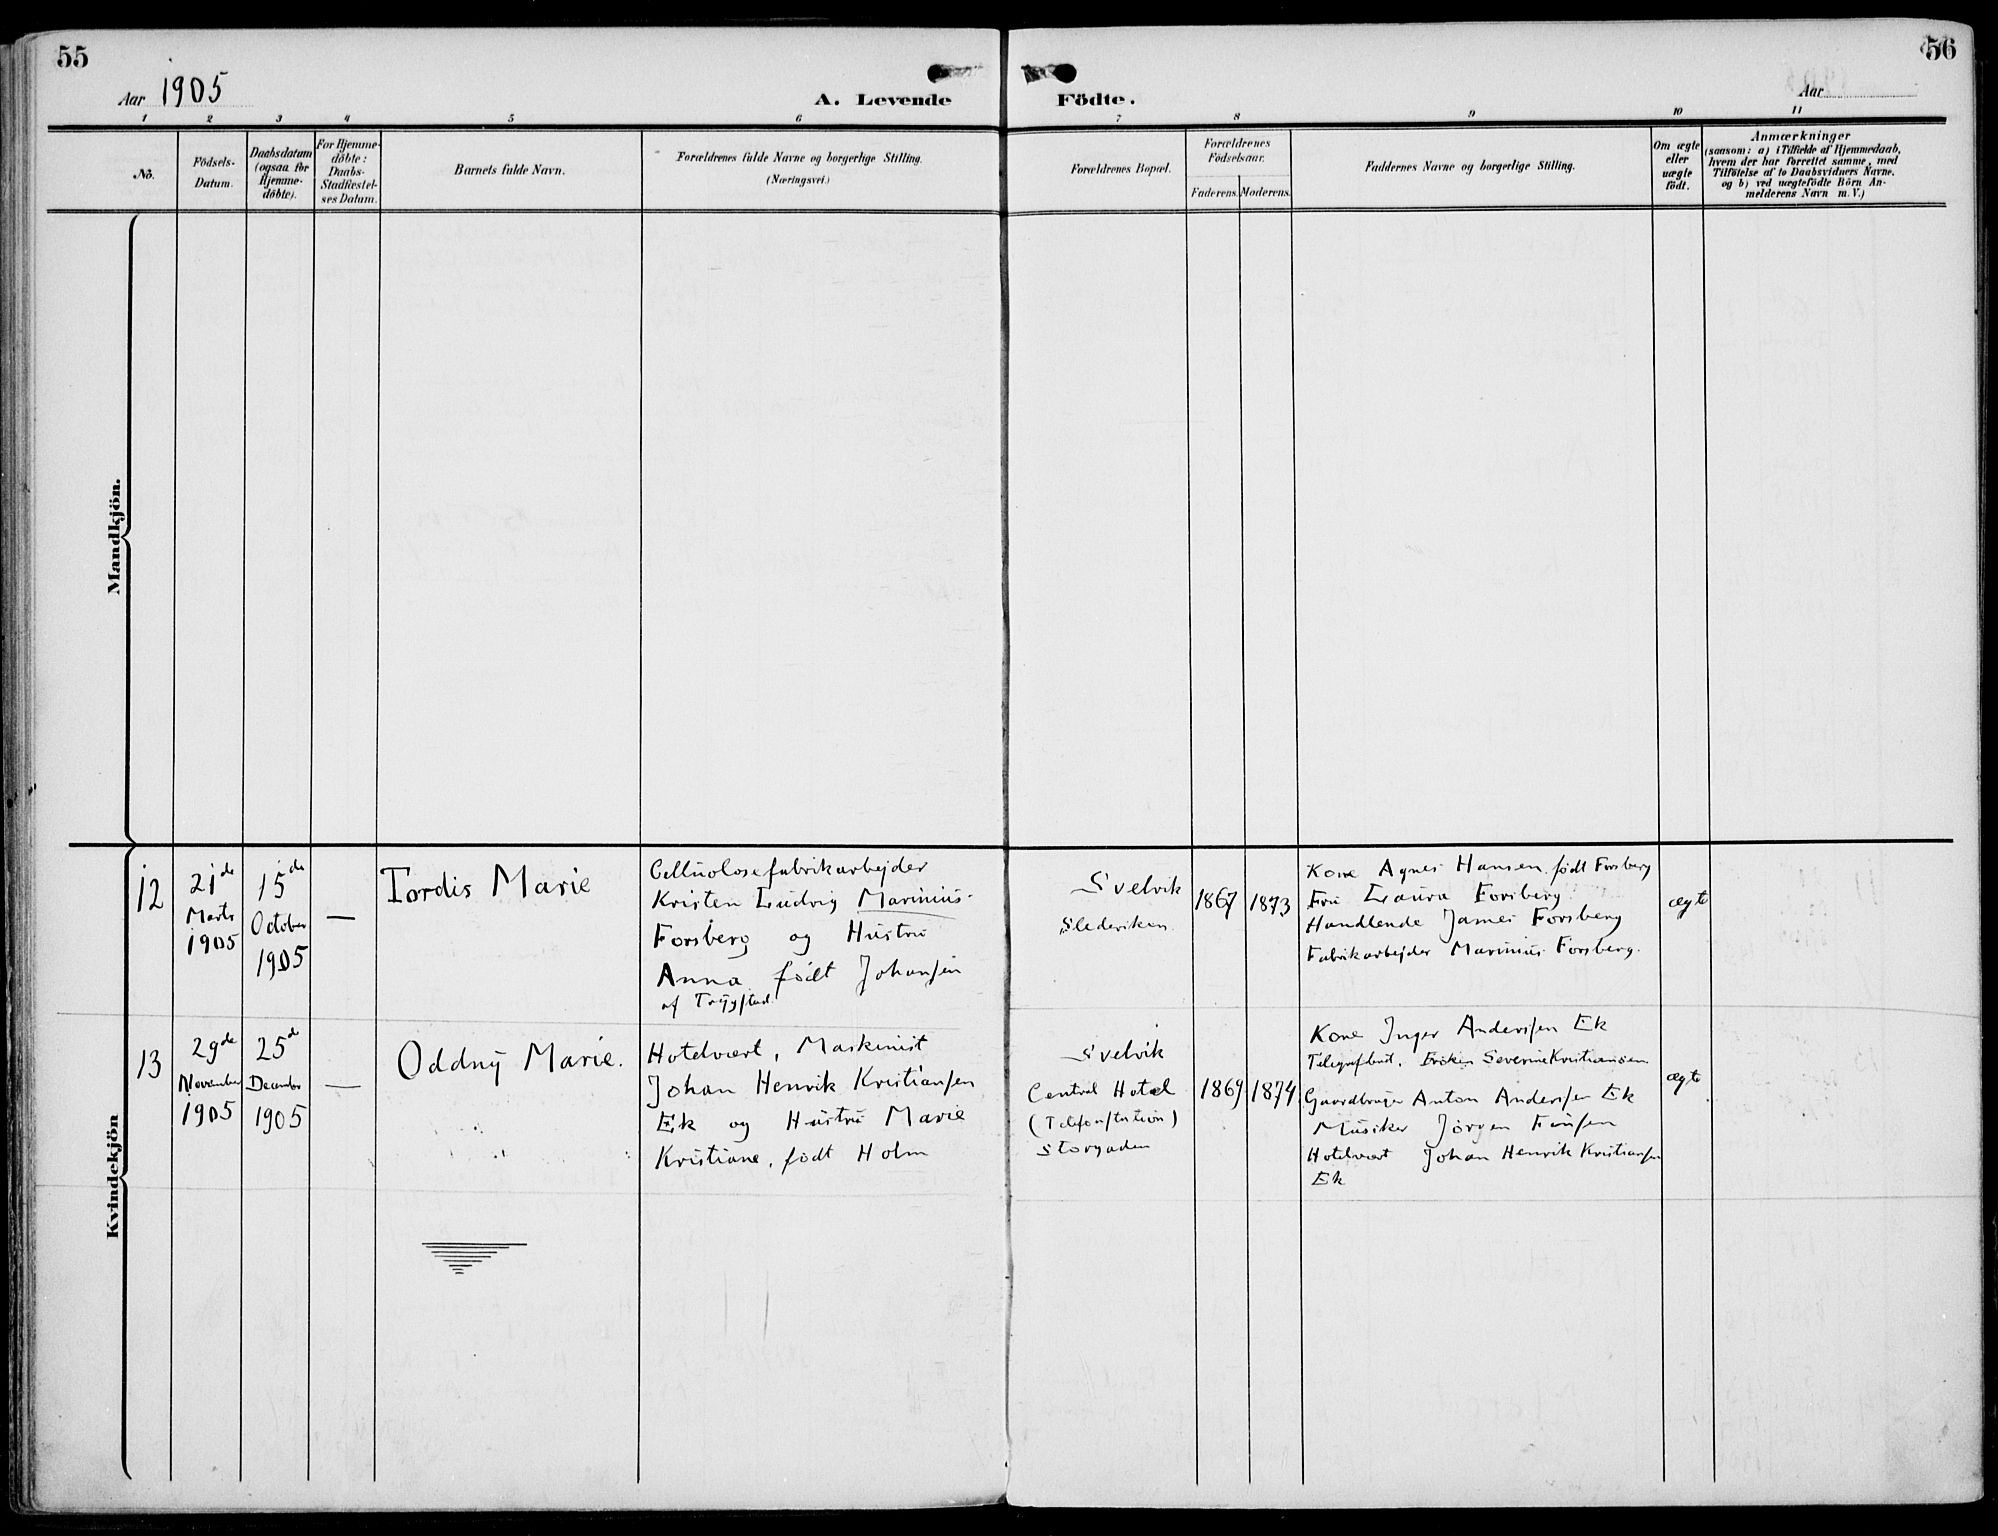 55
56
Aar 1905
A. Levende Födte.
Aar
1 2 3 4 5 6 7 8 9 10 11
No.
Födsels-
Datum.
Daabsdatum
(ogsaa for
Hjemme-
döbte).
For Hjemme-
döbte:
Daabs-
Stadfæstel-
ses Datum.
Barnets fulde Navn.
Forældrenes fulde Navne og borgerlige Stilling.
(Næringsvei.)
Forældrenes Bopæl.
Forældrenes
Födselsaar.
Faderens. Moderens.
Faddernes Navne og borgerlige Stilling.
Om ægte
eller
uægte
födt.
Anmærkninger
(saasom: a) i Tilfælde af Hjemmedaab,
hvem der har forrettet samme, med
Tilföielse af to Daabsvidners Navne.
og b) ved uægtefödte Börn An-
melderens Navn m. V.)
Mandkjön.
Kvindekjön
12
21de
Marts
1905
15de
October
1905
—
Tordis Marie
Celluolosefabrikarbejder
Kristen Ludvig Marinius
Forsberg og Hustru
Anna født Johansen
af Trygstad
Svelvik
1867
1873
Kone Agnes Hansen født Forsberg
Fru Laura Forsberg
Handlende James Forsberg
Fabrikarbejder Marinius Forsberg.
ægte
13
29de
November
1905
25d
December
1905
—
Oddny Marie.
Hotelvært, Maskinist
Johan Henrik Kristiansen
Ek og Hustru Marie
Kristiane, født Holm
Svelvik
Central Hotel
(Telefonstation)
Storgaden
1869
1874
Kone Inger Andersen Ek
Severine Kristiansen
Gaardbruger Anton Andersen Ek
Musiker Jörgen
Hotelvært Johan Henrik Kristiansen
Ek
ægte